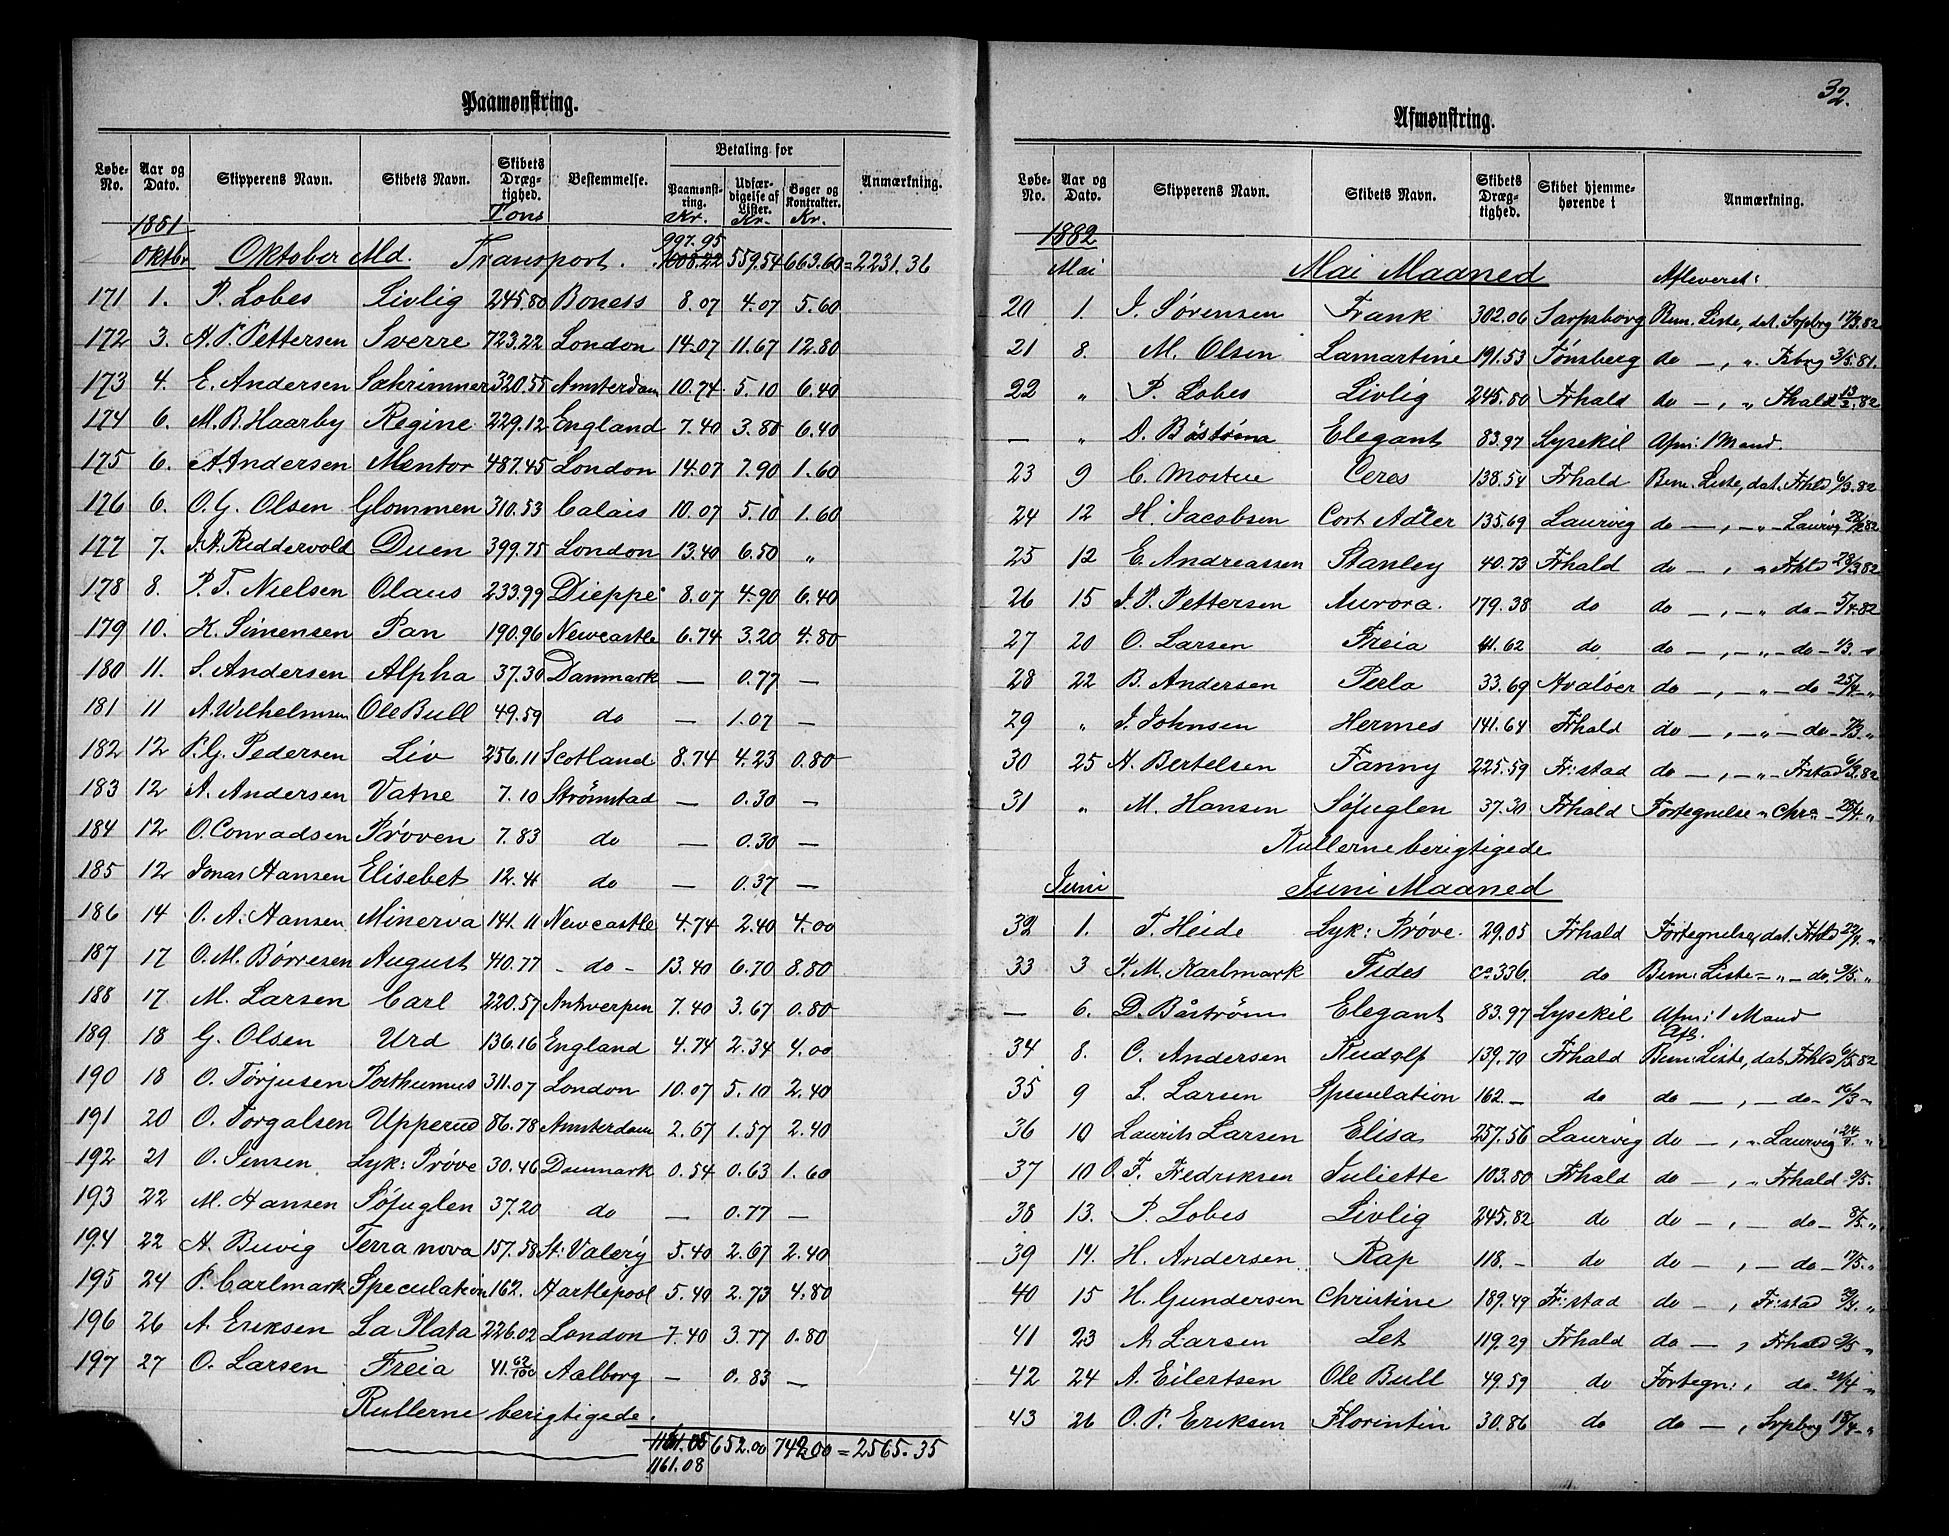 32.
Paamønstring.
Løbe-No. Aar og Dato. Skipperens Navn. Skibets Navn. Skibets Dræg-tighed. Bestemmelse. Betaling for Paamønst-ring. Udfær-digelse af Lister. Bøger og Kontrakter. Anmærkning.
1881 Tons Kr. Kr. Kr.
997.95
Oktbr Oktober Md. Transport. 1008.22 559.54 663.60 = 2231.36
171 1. P. Lobes Livlig 245.80 Boness 8.07 4.07 5.60
172 3. A. P. Pettersen Sverre 723.22 London 14.07 11.67 12.80
173 4. E. Andersen Sæhrimner 320.55 Amsterdam 10.74 5.10 6.40
174 6. M. B. Haarby Regine 229.12 England 7.40 3.80 6.40
175 6. A. Andersen Mentor 487.45 London 14.07 7.90 1.60
176 6. O. G. Olsen Glommen 310.53 Calais 10.07 5.10 1.60
177 7. J. A. Reddervold Duen 399.75 London 13.40 6.50 "
178 8. P. T. Nielsen Olaus 233.99 Dieppe 8.07 4.90 6.40
179 10. K. Simensen Pan 190.96 Newcastle 6.74 3.20 4.80
180 11. S. Andersen Alpha 37.30 Danmark — 0.77 —
181 11 A. Wilhelmsen Ole Bull 49.59 do — 1.07 —
182 12 P. G. Pedersen Liv 256.11 Scotland 8.74 4.23 0.80
183 12 A. Andersen Vatne 7.10 Strömstad — 0.30 —
184 12 O. Conradsen Prøven 7.83 do — 0.30 —
185 12 Jonas Hansen Elisebet 12.41 do — 0.37 —
186 14 O. A. Hansen Minerva 141.11 Newcastle 4.74 2.40 4.00
187 17 O. M. Børresen August 410.77 - do - 13.40 6.70 8.80
188 17 M. Larsen Carl 220.57 Antwerpen 7.40 3.67 0.80
189 18 G. Olsen Urd 136.16 England 4.74 2.34 4.00
190 18 O. Torjusen Posthumus 311.07 London 10.07 5.10 2.40
191 20 O. Torgalsen Upperud 86.78 Amsterdam 2.67 1.57 2.40
192 21 O. Jensen Lyk: Prøve 30.46 Danmark 0.54 0.63 1.60
193 22 M. Hansen Søfuglen 37.20 do — 0.77 —
194 22 A. Buvig Terra nova 157.58 St: Valery 5.40 2.67 2.40
195 24 P. Carlmark Speculation 162. Hartlepool 5.40 2.73 4.80
196 26 A. Eriksen La Plata 226.02 London 7.40 3.77 0.80
197 27 O. Larsen Freia 41 62/100 Aalborg — 0.83 —
Rullerne berigtigede.
1161.05 652.00 742.00 = 2565.35
1161.08
Afmønstring.
Løbe-No. Aar og Dato. Skipperens Navn. Skibets Navn. Skibets Dræg-tighed. Skibet hjemme-hørende i Anmærkning.
1882
Mai Mai Maaned Afleveret:
20 1. J. Sørensen Frank 302.06 Sarpsborg Bem. Liste, dat. Srpbrg 17/3.82
21 8. M. Olsen Lamartine 191.53 Tønsberg do —, " Tsbrg 3/5.81.
22 " P. Lobes Livlig 245.80 Frhald do —, " Fhald 13/2.82
— " D. Båström Elegant 83.97 Lysekil Afm: 1 Mand.
23 9 C. Mostue Ceres 138.54 Frhald Bem. Liste, dat. Frhld 6/3.82
24 12 H. Jacobsen Cort Adler 135.69 Laurvig do —, — " - Laurvig
25 12 E. Andreassen Stanley 40.73 Frhald do —, " Frhld 28/3.82
26 15 J. P. Pettersen Aurora. 179.38 do do —, — " do — 5/4.82
27 20 O. Larsen Freia 41.62 do do —, — " — do — 1/3. "
28 22 B. Andersen Perla 33.69 Hvaløer do —, — " — do 25/4 "
29 " J. Johnsen Hermes 141.64 Frhald do —, — " — do — 7/3. "
30 25 A. Bertelsen Fanny 225.59 Fr:stad do —, — " - Frstad 6/3.82
31 " M. Hansen Søfuglen 37.30 Frhald Fortegnelse " Chra — 28/4. "
Rullerne berigtigede
Juni Juni Maaned
32 1. T. Heide Lyk: Prøve. 29.05 Frhald Fortegnelse, dat. Frhld 22/4. "
33 3 P. M. Karlmark Fides ca 336. do Bem: Liste — " — do. 9/5. "
— 6. D. Båström Elegant 83.97 Lysekil Afm: 1 Mand
Afl.
34 8. C. Andersen Rudolf 139.70 Frhald Bem: Liste, dat. Frhld 6/5.82
35 9 S. Larsen Speculation 162. — do do —, — do — 16/3 — "
36 10 Laurits Larsen Elisa 257.56 Laurvig do —, " Laurvig
37 10 O. F. Fredriksen Juliette 103.80 Frhald do —, " Frhald 9/5.
38 13. P. Lobes Livlig 245.82 do do —, — do — 8/5. "
39 14. H. Andersen Rap 118. — do do —, — do — 17/5. "
40 15 H. Gundersen Christine 189.49 Fr:stad do —, Fr:stad
41 23 A. Larsen Let 119.29 Frhald do —, Frhald 9/5 "
42 24 A. Eilertsen Ole Bull 49.59 do Fortegn:, do — 21/4 — "
43 26 O. P. Eriksen Florintin 30.86 do do —, Srpbrg 18/4 — "